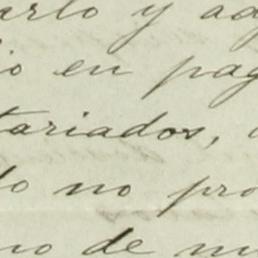 arlo y ad
io en pag
tariados,
do no pro
no de mu